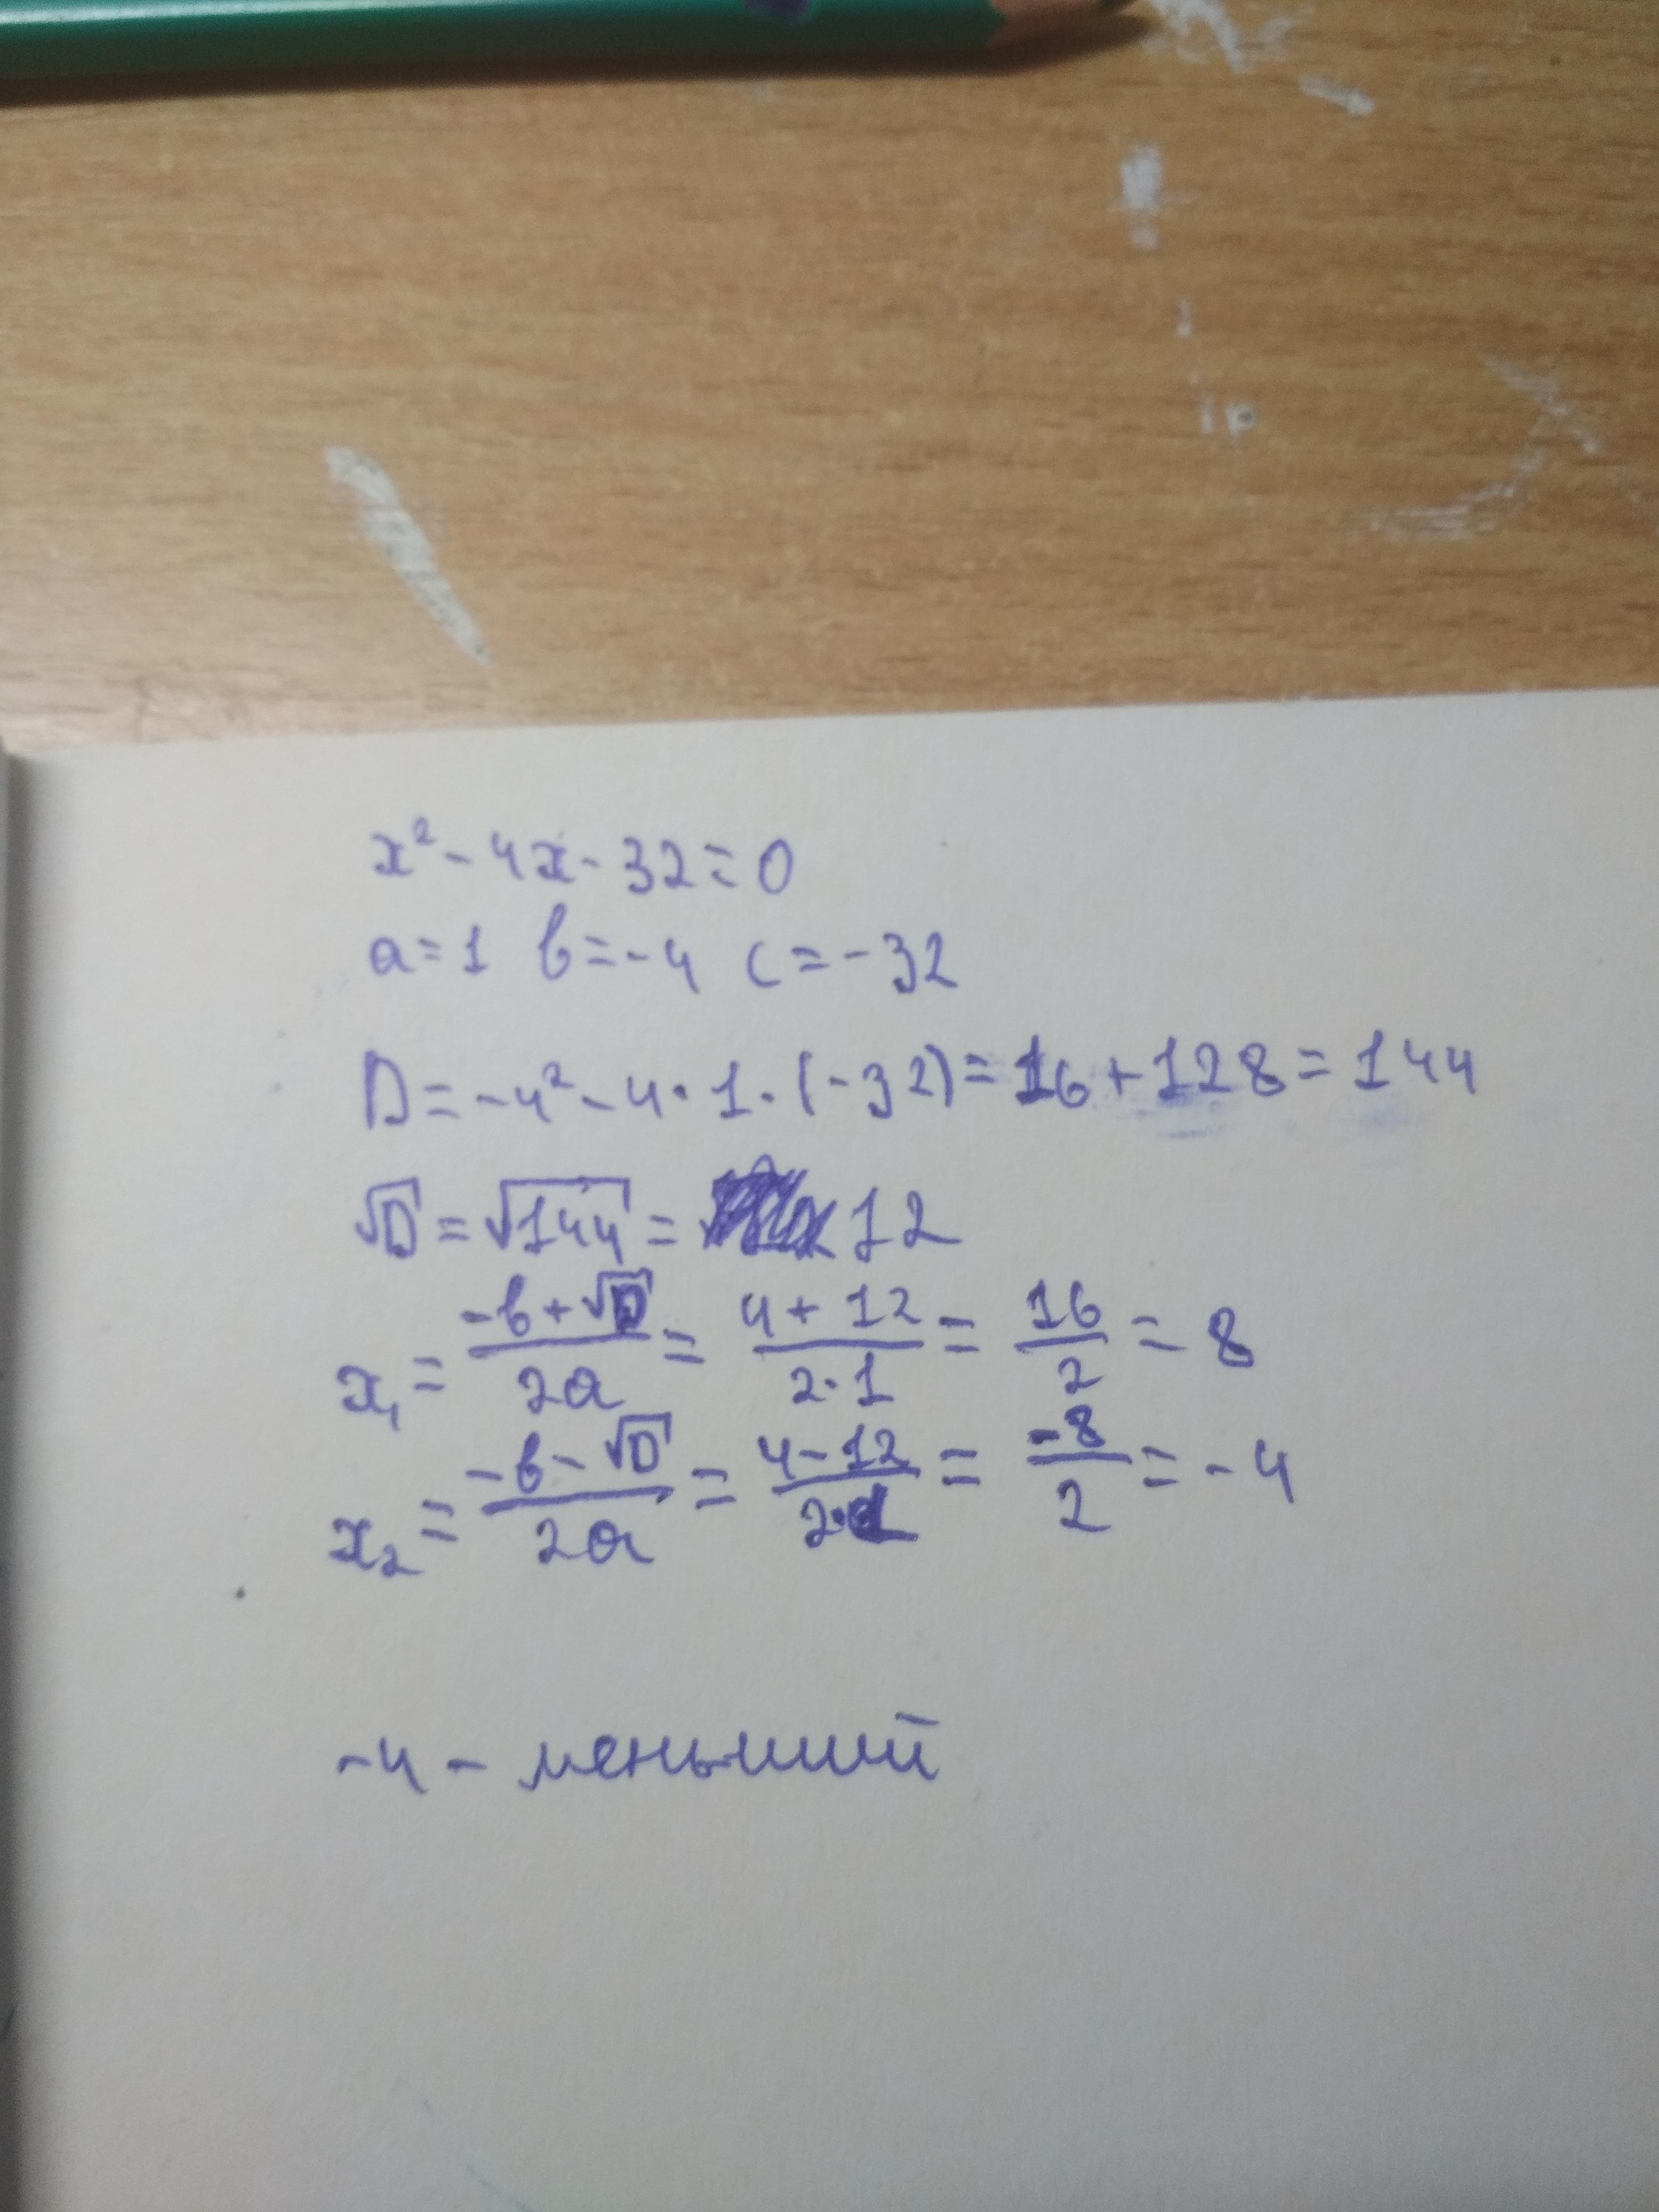 x² - 4x - 32 = 0
a = 1 b = -4 c = -32
D = -4² - 4 · 1 · (-32) = 16 + 128 = 144
√D = √144 = 12
x₁ = (-b + √D)/(2a) = (4 + 12)/(2 · 1) = 16/2 = 8
x₂ = (-b - √D)/(2a) = (4 - 12)/(2 · 1) = -8/2 = -4
-4 - меньший